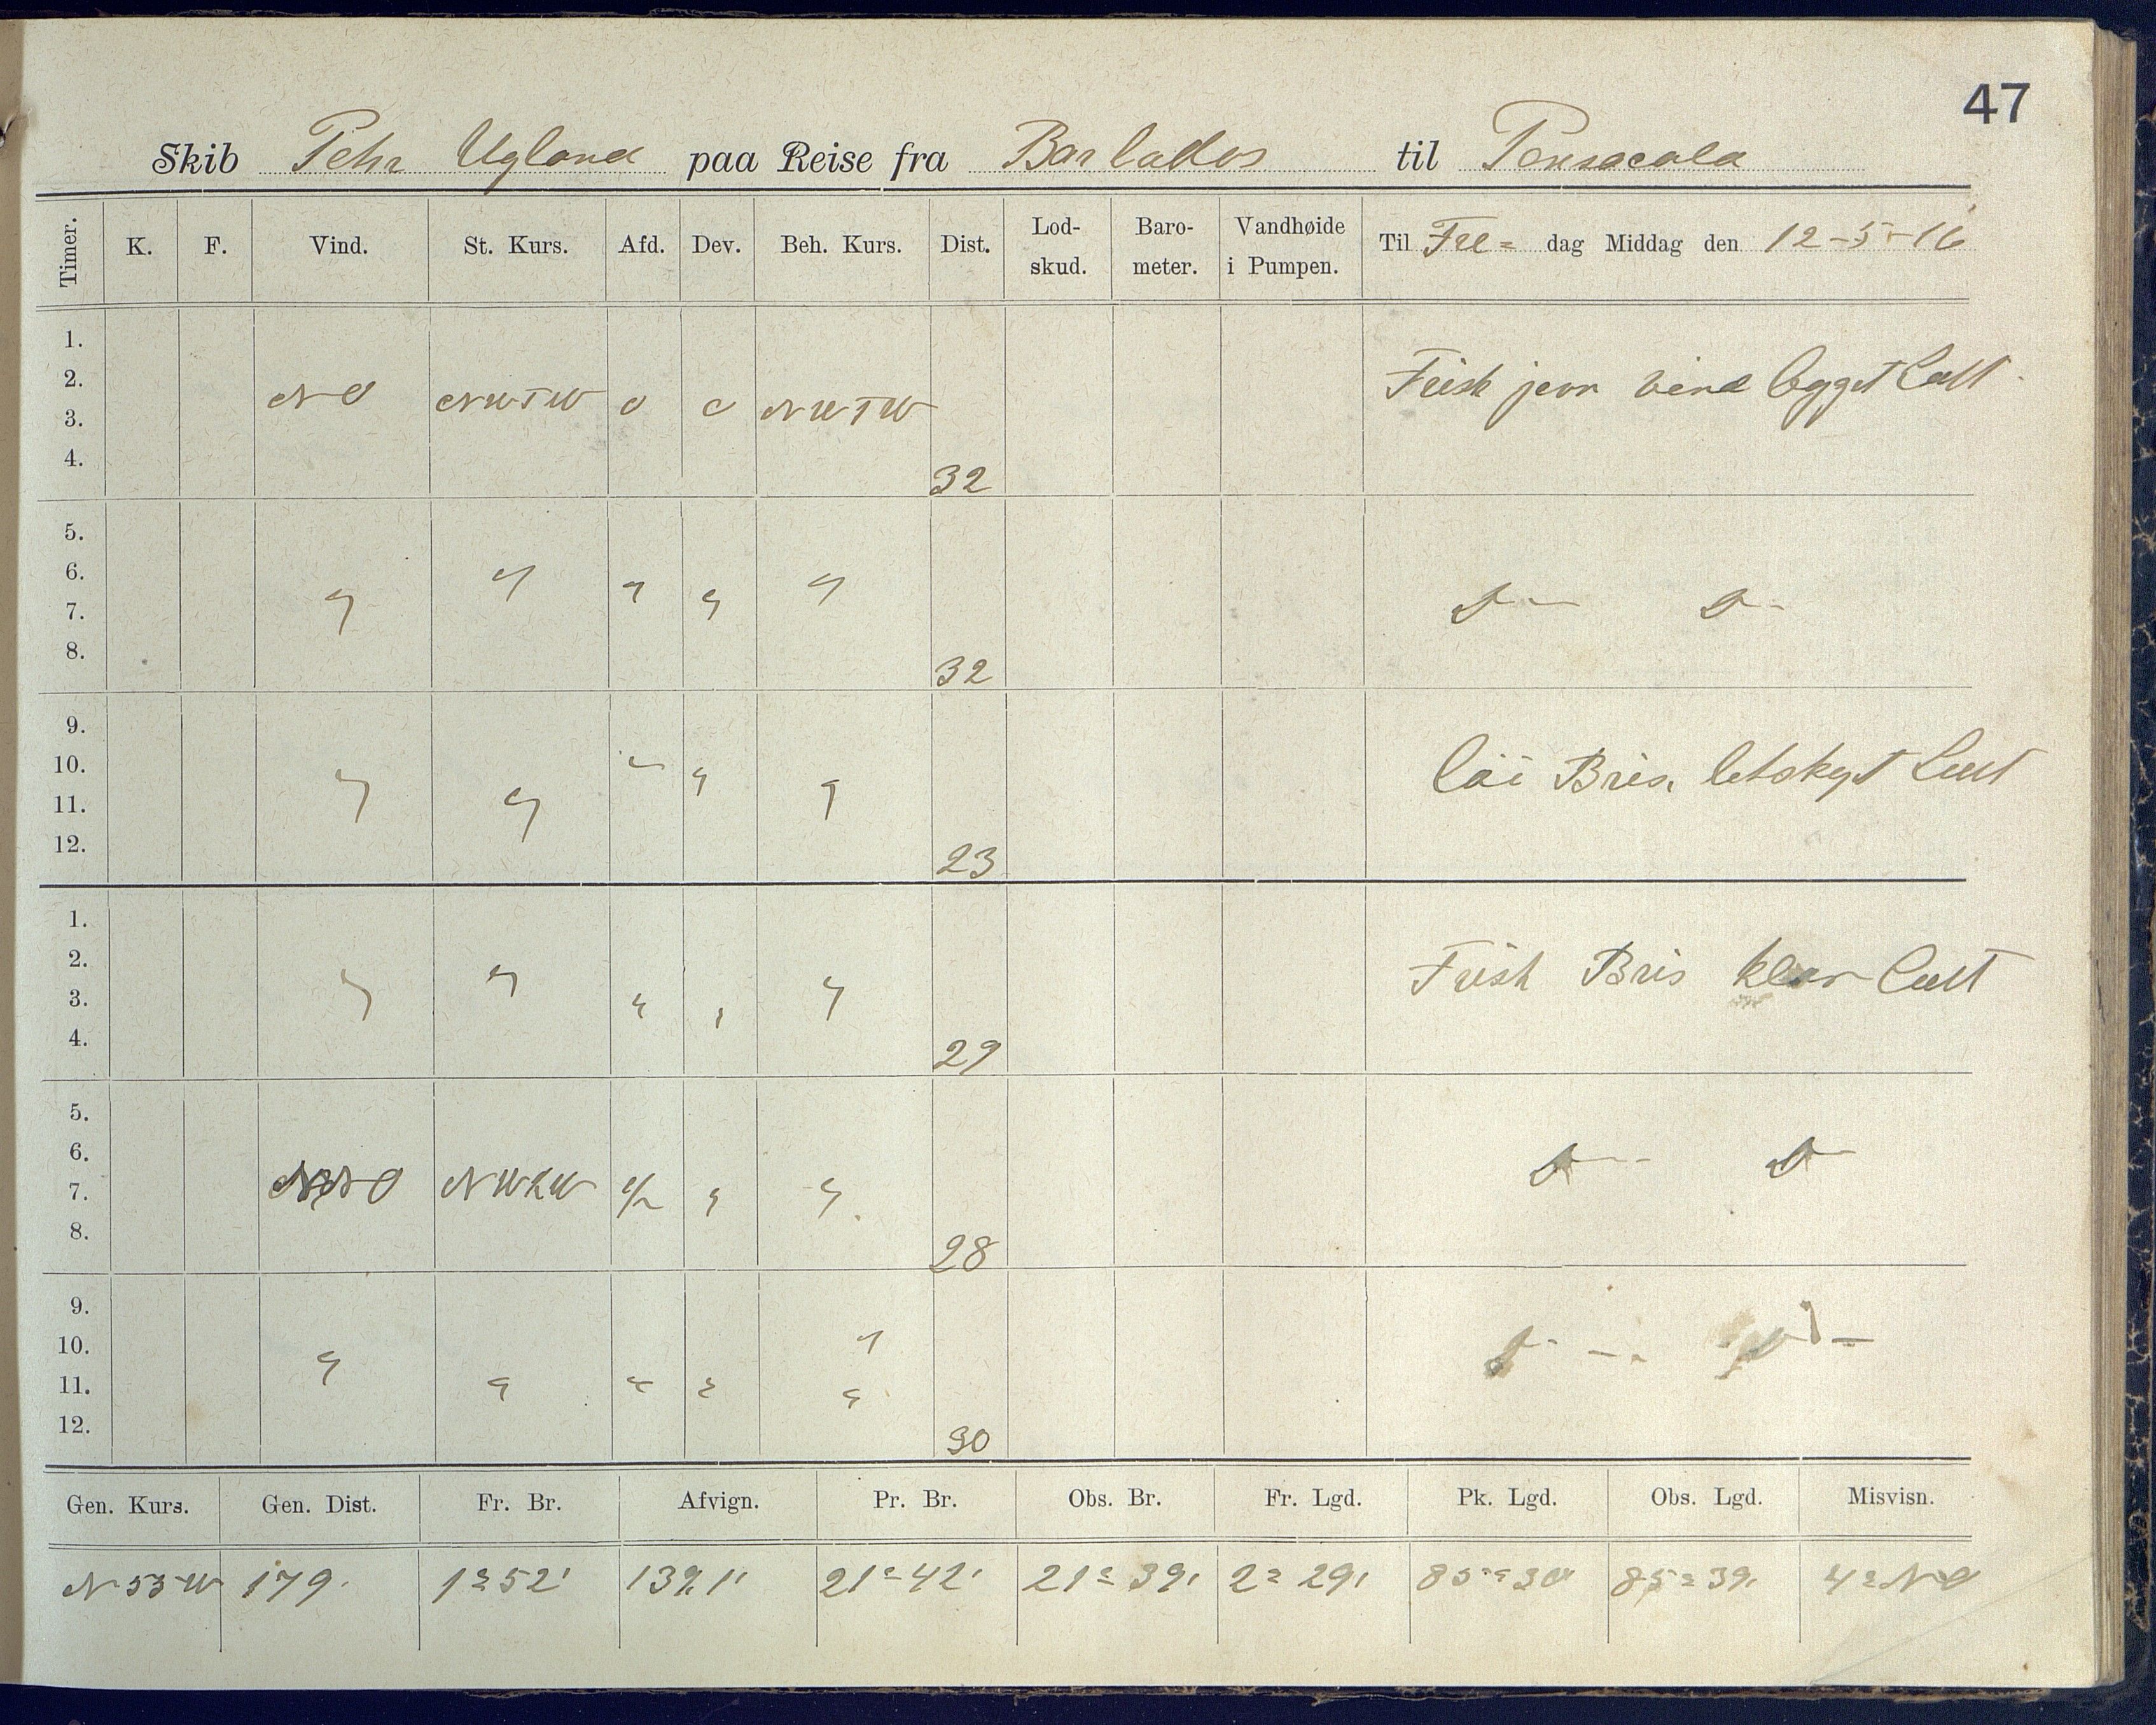 47
Skib Pehr Ugland paa Reise fra Barbados til Pensacola
Timer. K. F. Vind. St. Kurs. Afd. Dev. Beh. Kurs. Dist. Lod-skud. Baro-meter. Vandhøide i Pumpen. Til Fre= dag Middag den 12-5-16
1.
2. Frish jevn vind bygget Luft
3. NO NWTW 0 0 NWTW
4. 32
5.
6. " " " " "
7. D— D—
8. 32
9.
10. Löi Bris. letskyt Luft
11. " " " " "
12. 23
1.
2. Frish Bris klar Luft
3. " " " " "
4. 29
5.
6. D— D—
7. NNO NWKW 1/2 " "
8. 28
9.
10. " D— D—
11. " " " " "
12. 30
Gen. Kurs. Gen. Dist. Fr. Br. Afvign. Pr. Br. Obs. Br. Fr. Lgd. Pk. Lgd. Obs. Lgd. Misvisn.
N 53 W 179. 1° 52' 139,1' 21° 42' 21° 39' 2° 29' 85° 30' 85° 39' 4° NO